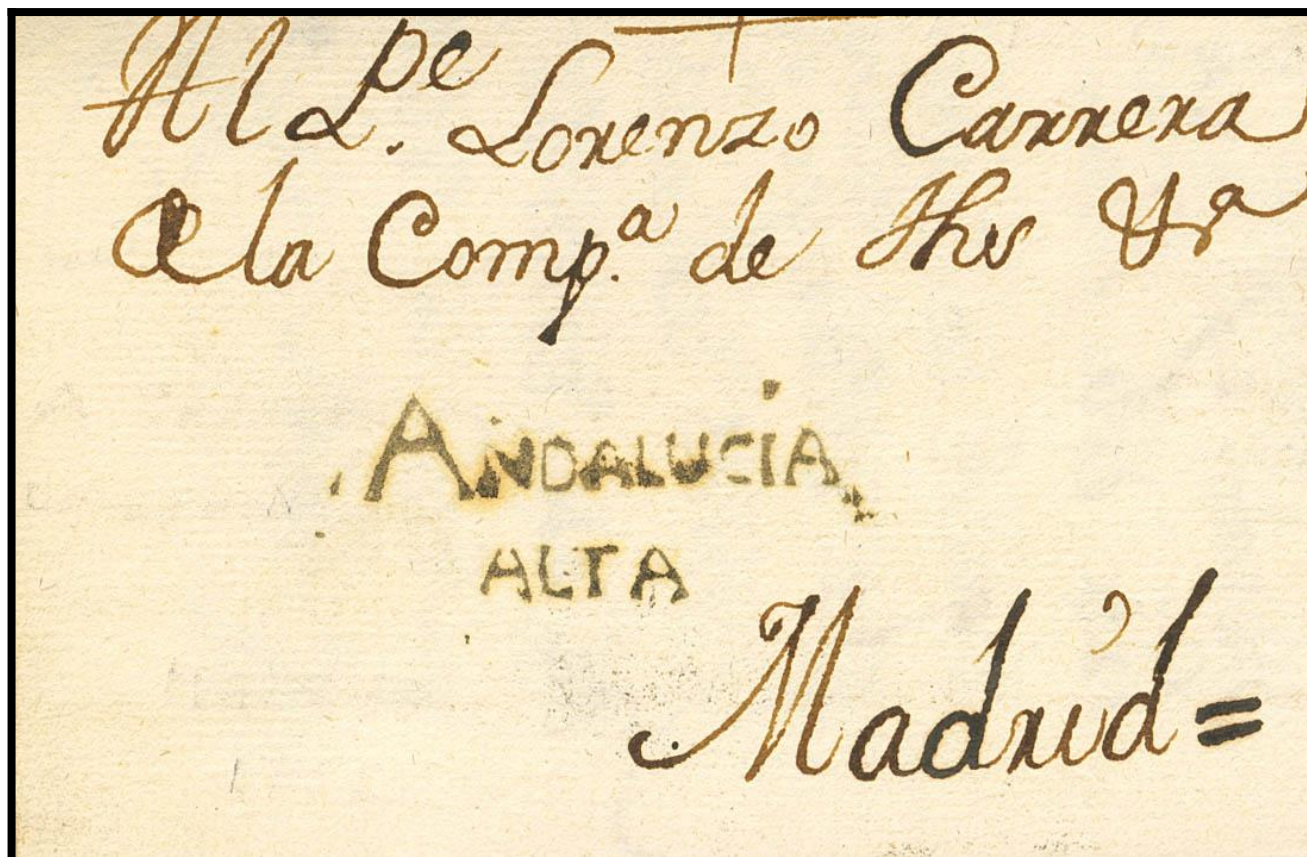 Al Pe. Lorenzo Carrera
de la Comp.a de Jhs
ANDALUCÍA
ALTA
Madrid=